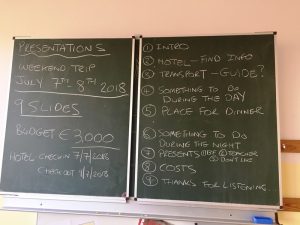 PRESENTATIONS
WEEKEND TRIP
JULY 7TH-8TH 2018
9 SLIDES
BUDGET € 3,000
HOTEL CHECK IN 7/7/2018
CHECK OUT /7/2018
① INTRO
② HOTEL - FIND INFO
③ TRANSPORT - GUIDE?
④ SOMETHING TO DO
DURING THE DAY
⑤ PLACE FOR DINNER
⑥ SOMETHING TO DO
DURING THE NIGHT
⑦ PRESENTS TEACHER
DON'T LIKE
⑧ COSTS
⑨ THANKS FOR LISTENING...